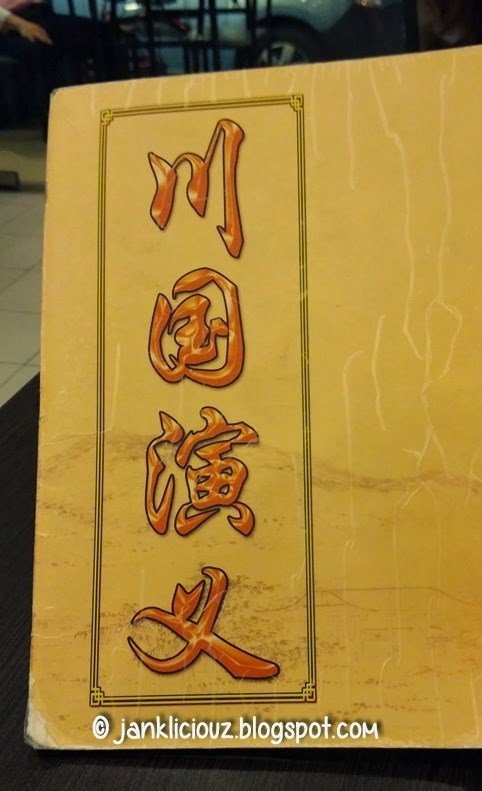 川国演义
© jankliciouz.blogspot.com